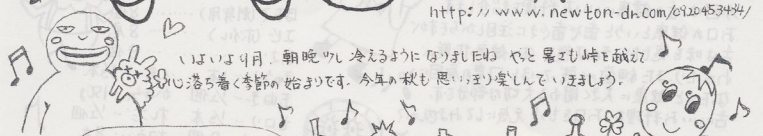 http://www.newton-dr.com/0920453434/
いよいよ9月 朝晩少し冷えるようになりましたね やっと暑さも峠を越えて
心落ち着く季節の始まりです。今年の秋も思いっきり楽しんでいきましょう。